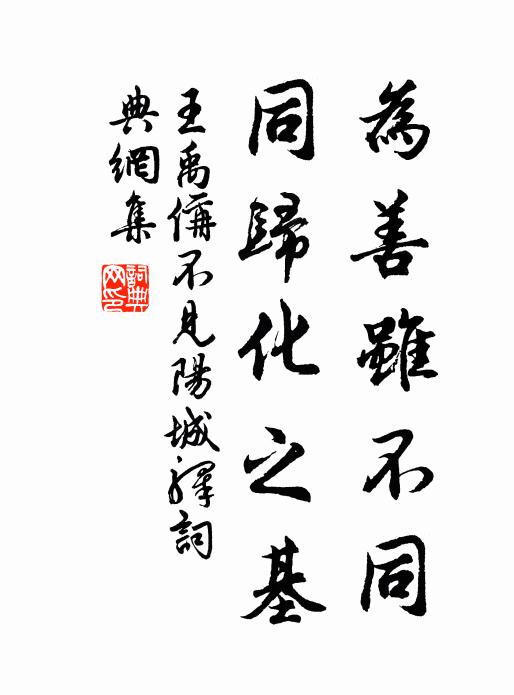 為善雖不同
同歸化之基
王禹偁不見陽城驛詞
典網集
詞典網印